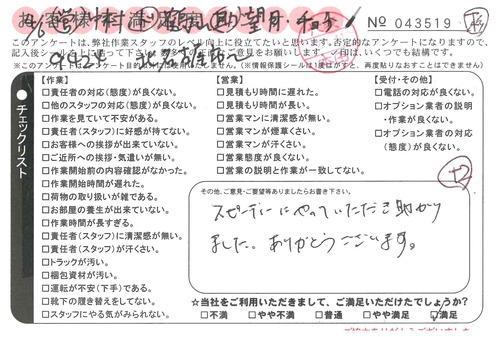 No 043519
このアンケートは、弊社作業スタッフのレベル向上に役立てたいと思います。否定的なアンケートになりますので、
記入後シールを
※このアンケートは
【作業】
□責任者の対応(態度)が良くない。
□他のスタッフの対応(態度)が良くない。
□作業を見ていて不安がある。
□責任者(スタッフ)に好感が持てない。
□お客様への挨拶が出来ていない。
□ご近所への挨拶・気遣いが無い。
□作業開始前の内容確認がなかった。
□作業開始時間が遅れた。
□荷物の取り扱いが雑である。
□お部屋の養生が出来ていない。
□作業時間が長すぎる。
□責任者(スタッフ)に清潔感が無い。
□責任者(スタッフ)が汗くさい。
□トラックが汚い。
□梱包資材が汚い。
□運転が不安(下手)である。
□靴下の履き替えをしてない。
□スタッフにやる気がみられない。
【営業】
□見積もり時間に遅れた。
□見積もり時間が長い。
□営業マンに清潔感が無い。
□営業マンが煙草くさい。
□営業マンが汗くさい。
□営業態度が良くない。
□営業の説明と作業が一致してない。
【受付・その他】
□電話の対応が良くない。
□オプション業者の説明
・作業が良くない。
□オプション業者の対応
(態度)が良くない。
チェックリスト
その他、ご意見・ご要望等ありましたらお書き下さい。
スピーディーにやっていただき助かり
ました。ありがとうございます。
☆当社をご利用いただきまして、ご満足いただけたでしょうか?
□不満 □やや不満 □普通 □やや満足 ☑満足